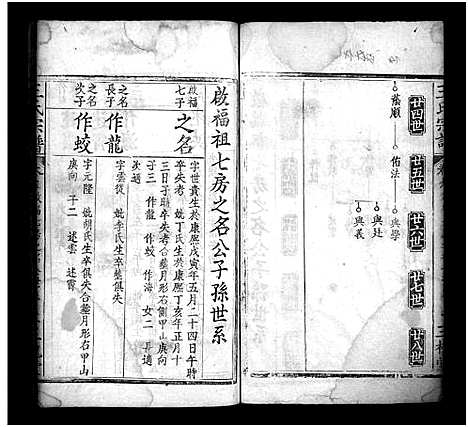 王氏宗譜
廿四世
廿五世
廿六世
廿七世
廿八世
蔭順
佑法
與學
與廷
與義
啟福祖七房之名公子孫世系
啟福
七子
之名
字世貴生於康熙戊寅年五月二十四日午時
卒失考 娶丁氏生於康熙丁亥年正月十
三日子時卒失考合塟月形右側甲山庚向
子三 作龍 作蛟 作海 女二 具適
之名
長子
作龍
字雲從 娶李氏生卒塟俱失
之名
次子
作蛟
字元隆 娶胡氏生卒俱失合塟月形右甲山
庚向 子二 述雲 述霄
王氏宗譜